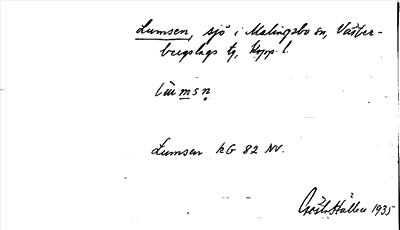 Lumsen, sjö i Malingsbo sn, Väster-
bergslags tg, Kopp. l.
Lumsen KG 82 NV.
Gösta Hallin 1935